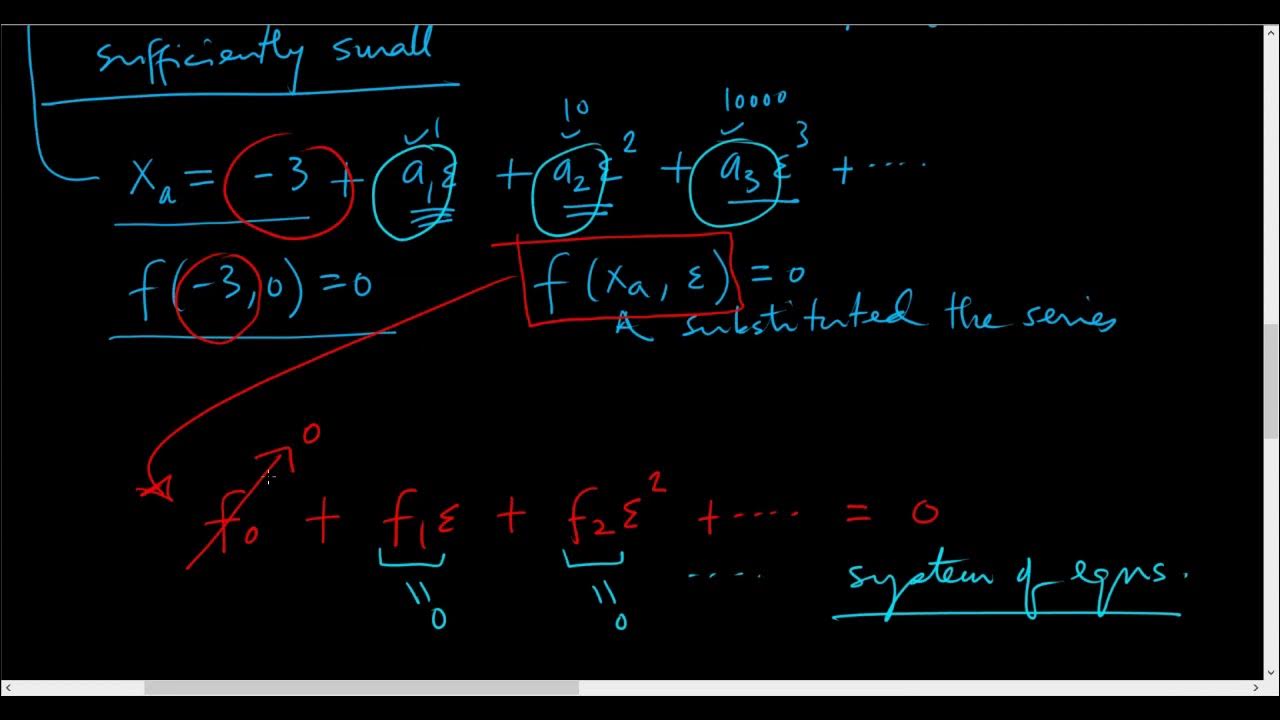 sufficiently small
1 10 10000
xₐ = -3 + a₁ε + a₂ε² + a₃ε³ + ....
f(-3, 0) = 0 f(xₐ, ε) = 0
substituted the series
0
f₀ + f₁ε + f₂ε² + .... = 0
.... system of eqns.
0 0